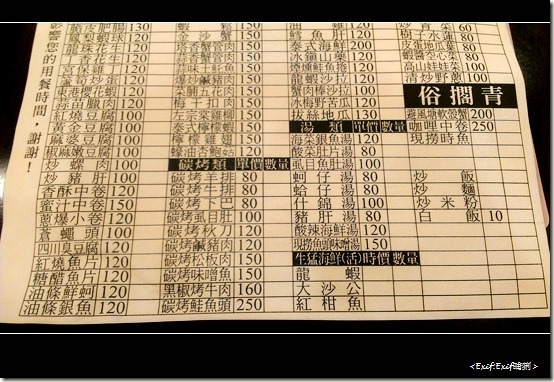 影響您的用餐時間,謝謝!
龍珠花生 120
丁香花生 120
宮保雞丁 120
東港櫻花蝦 120
蒜苗臘肉 120
紅燒豆腐 100
黃金豆腐 100
麻婆豆腐 100
椒麻嫩豆腐 100
炒螺肉 100
炒豬肝 100
香酥中卷 120
蜜汁中卷 150
蔥爆小卷 120
蒼蠅頭 100
四川臭豆腐 120
紅燒魚片 120
糖醋魚片 120
油條鮮蚵 120
油條銀魚 120
金沙蟹
塔香蟹管肉
爆炒鹹豬肉
菜脯五花肉
梅干扣肉
左宗棠雞柳
泰式檸檬蝦
檸檬雞翅
碳烤類 單價 數量
碳烤羊排 80
碳烤牛排 80
碳烤下巴 80
碳烤虱目肚 100
碳烤秋刀 120
碳烤鹹豬肉 120
碳烤松板肉 150
碳烤味噌魚 150
黑椒烤牛肉 160
碳烤鮭魚頭 250
鱈魚肝 100
泰式海鮮 200
冰鎮山藥 120
龍蝦沙拉 120
蟹肉棒沙拉 100
冰梅野苦瓜 120
拔絲地瓜 130
湯類 單價 數量
海菜銀魚湯 120
酸菜肚片湯 80
虱目魚肚湯 100
蚵仔湯 80
蛤仔湯 80
什錦湯 100
豬肝湯 80
酸辣海鮮湯 120
現撈魚頭味噌湯 150
生猛海鮮(活) 時價 數量
龍蝦
大沙公
紅柑魚
炒青菜 60
樹子水蓮 80
皮蛋地瓜葉 80
蝦醬空心菜 80
高山娃娃菜 100
清炒野蔬 100
俗擱青
避風塘軟殼蟹 200
咖哩中卷 250
現撈時魚
炒飯
炒麵
炒米粉
白飯 10
<Exif:Exif識別>